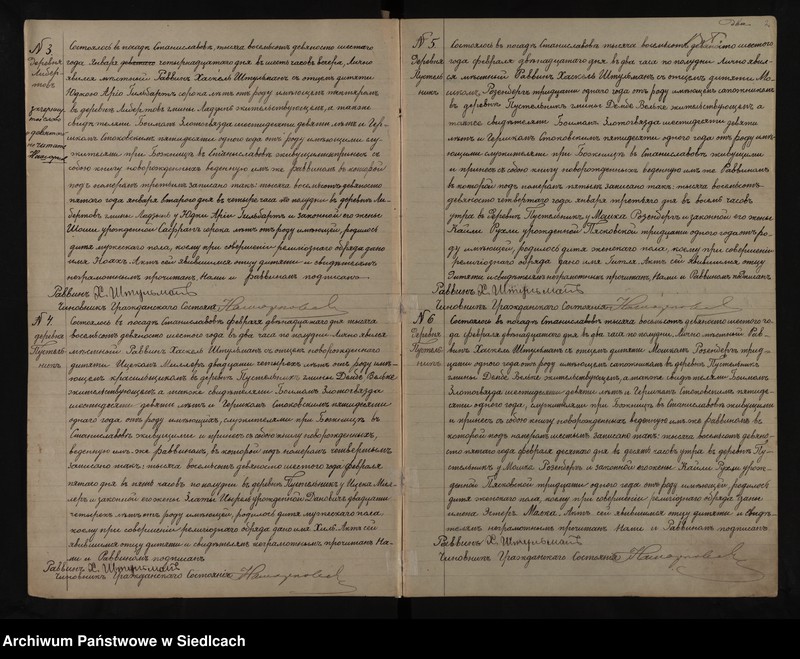 N 3.
Деревня
Либер-
товъ
Состоялось въ посадѣ Станиславовѣ, тысяча восемьсотъ девяносто шестого
года Января четырнадцатаго дня въ шесть часовъ вечера, Лично
явился мѣстный Раввинъ Хаскель Штульманъ съ отцемъ дитяти
сорока лѣтъ отъ роду имѣющимъ
въ деревнѣ Либертовъ гмины жительствующемъ, а также
свидѣтелями Боимомъ Злотогвязда шестидесяти девяти лѣтъ и Гер-
шкомъ Стоковскимъ пятидесяти одного года отъ роду имѣющими слу-
жителями при Божницѣ въ Станиславовѣ живущими и принесъ съ
собою книгу новорожденныхъ веденную имъ же раввиномъ въ которой
подъ номеромъ третьимъ записано такъ: тысяча восемьсотъ девяносто
пятаго года января втораго дня въ четыре часа по полудни въ деревнѣ Ли-
бертовъ гмины у и законной его жены
урожденной сорока лѣтъ отъ роду имѣющей, родилось
дитя мужескаго пола, коему при совершеніи религіознаго обряда дано
имя Актъ сей явившимся отцу дитяти и свидѣтелямъ
неграмотнымъ прочитанъ, Нами и раввиномъ подписанъ
Раввинъ Х. Штульманъ
Чиновникъ Гражданскаго Состоянія
N 4.
деревня
Пустель-
никъ
Состоялось въ посадѣ Станиславовѣ февраля двѣнадцатаго дня тысяча
восемьсотъ девяносто шестого года въ два часа по полудни Лично явился
мѣстный Раввинъ Хаскель Штульманъ съ отцемъ новорожденнаго
дитяти Ицкомъ Миллеръ двадцати четырехъ лѣтъ отъ роду имѣ-
ющемъ красильщикомъ въ деревнѣ Пустельникъ гмины Дембе Вельке
жительствующемъ а также свидѣтелями Боимомъ Злотогвязда
шестидесяти девяти лѣтъ и Гершкомъ Стоковскимъ пятидесяти
одного года отъ роду имѣющихъ, служителями при Божницѣ въ
Станиславовѣ живущими и принесъ съ собою книгу новорожденныхъ,
веденную имъ же раввиномъ, въ которой подъ номеромъ четвертымъ
Записано такъ: тысяча восемьсотъ девяносто шестого года февраля
пятаго дня въ пять часовъ по полудни въ деревнѣ Пустельникъ у Ицека Мил-
леръ и законной его жены Златы урожденной двадцати
четырехъ лѣтъ отъ роду имѣющей, родилось дитя мужескаго пола,
коему при совершеніи религіознаго обряда дано имя Актъ сей
явившимся отцу дитяти и свидѣтелямъ неграмотнымъ прочитанъ На-
ми и Раввиномъ подписанъ
Раввинъ Х. Штульманъ
Чиновникъ Гражданскаго Состоянія
N 5.
Деревня
Пустель-
никъ
Состоялось въ посадѣ Станиславовѣ тысяча восемьсотъ девяносто шестого
года февраля двѣнадцатаго дня въ два часа по полудни Лично явил-
ся мѣстный Раввинъ Хаскель Штульманъ съ отцемъ дитяти Мо-
шкомъ Розенбергъ тридцати одного года отъ роду имѣющемъ сапожникомъ
въ деревнѣ Пустельникъ гмины Дембе Вельке жительствующемъ а
также свидѣтелями Боимомъ Злотогвязда шестидесяти девяти
лѣтъ и Гершкомъ Стоковскимъ пятидесяти одного года отъ роду имѣ-
ющими служителями при Божницѣ въ Станиславовѣ живущими
и принесъ съ собою книгу новорожденныхъ веденную имъ же Раввиномъ
въ которой подъ номеромъ пятымъ записано такъ: тысяча восемьсотъ
девяносто четвертаго года января третяго дня въ восемь часовъ
утра въ деревнѣ Пустельникъ у Мошка Розенбергъ и законной его жены
Кайли Рухли урожденной Пясковской тридцати одного года отъ ро-
ду имѣющей, родилось дитя женскаго пола, коему при совершеніи
религіознаго обряда дано имя Гитля Актъ сей явившимся отцу
дитяти и свидѣтелямъ неграмотнымъ прочитанъ, Нами и Раввиномъ подписанъ
Раввинъ Х. Штульманъ
Чиновникъ Гражданскаго Состоянія
N 6
Деревня
Пустель-
никъ
Состоялось въ посадѣ Станиславовѣ тысяча восемьсотъ девяносто шестого го-
да февраля двѣнадцатаго дня въ два часа по полудни, Лично явился мѣстный Рав-
винъ Хаскель Штульманъ съ отцемъ дитяти Мошкомъ Розенбергъ трид-
цати одного года отъ роду имѣющемъ сапожникомъ въ деревнѣ Пустельникъ
гмины Дембе Вельке жительствующемъ, а также свидѣтелями Боимомъ
Злотогвязда шестидесяти девяти лѣтъ и Гершкомъ Стоковскимъ пятиде-
сяти одного года, служителями при Божницѣ въ Станиславовѣ живущими
и принесъ съ собою книгу новорожденныхъ веденную имъ же раввиномъ въ
которой подъ номеромъ шестымъ Записано такъ: тысяча восемьсотъ девяно-
сто пятаго года февраля десятаго дня въ десять часовъ утра въ деревнѣ Пу-
стельникъ у Мошка Розенбергъ и законной его жены Кайли Рухли урож-
денной Пясковской тридцати одного года отъ роду имѣющей родилось
дитя женскаго пола, коему при совершеніи религіознаго обряда даны
имена Эстеръ Малка. Актъ сей явившимся отцу дитяти и свидѣ-
телямъ неграмотнымъ прочитанъ Нами и Раввиномъ подписанъ
Раввинъ Х. Штульманъ
Чиновникъ Гражданскаго Состоянія
Archiwum Państwowe w Siedlcach